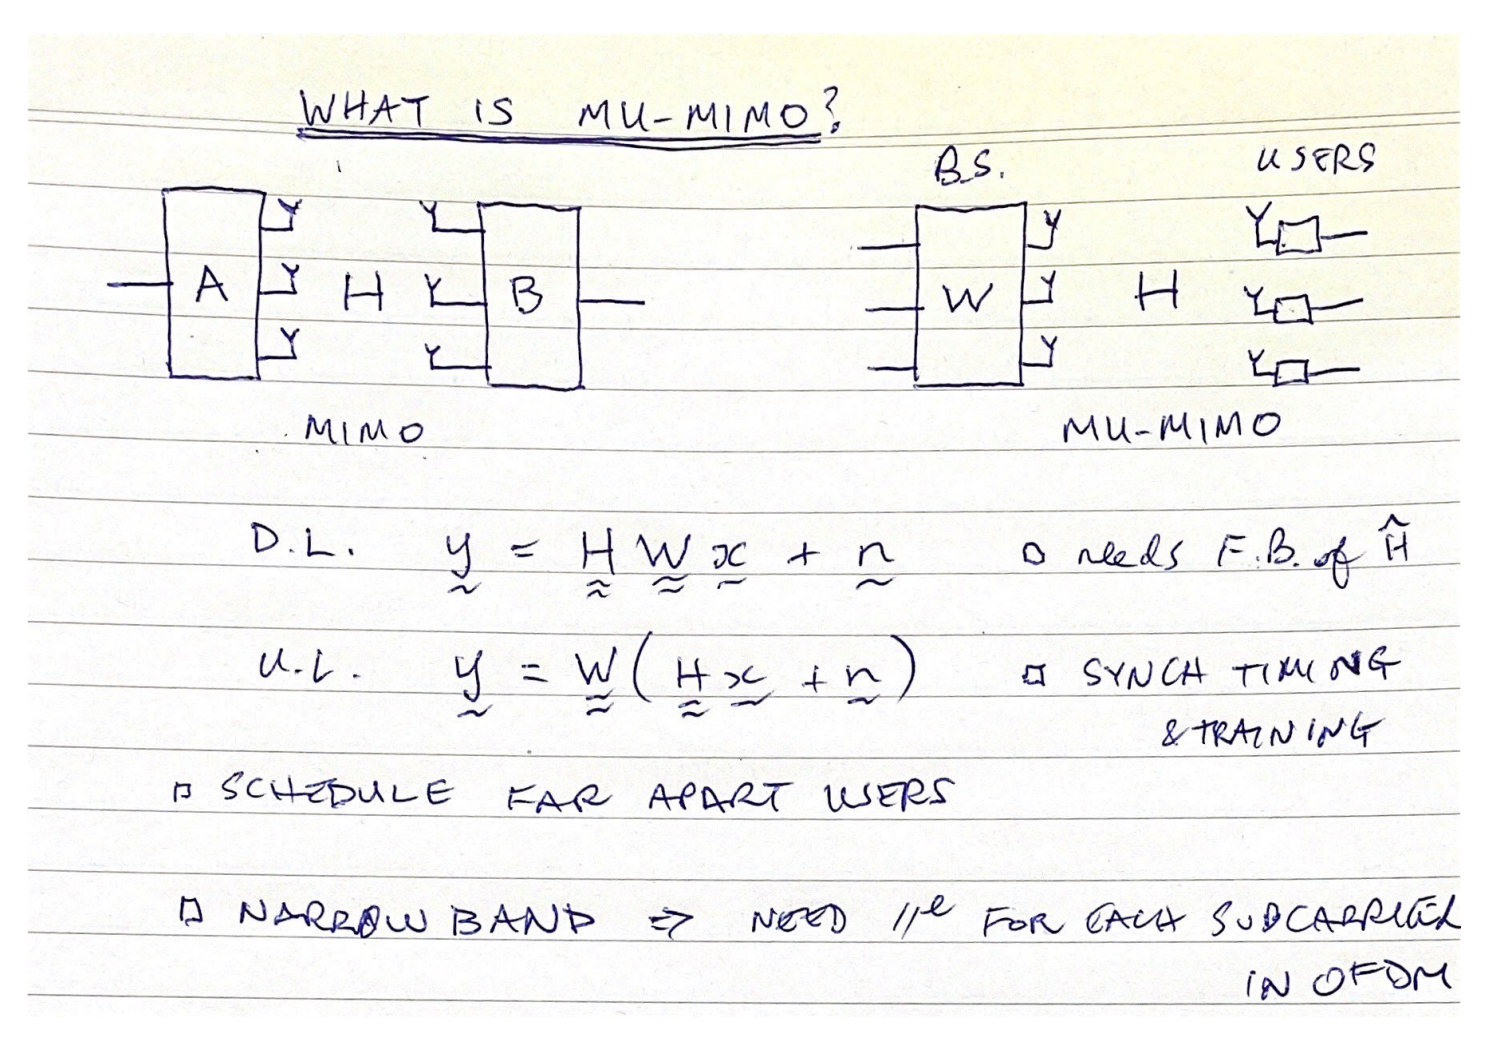 WHAT IS MU-MIMO?
B.S. USERS
A H B W H
MIMO MU-MIMO
D.L. y = H W x + n needs F.B. of Ĥ
U.L. y = W ( H x + n ) SYNCH TIMING
& TRAINING
SCHEDULE FAR APART USERS
NARROW BAND ⇒ NEED //le FOR EACH SUBCARRIER
IN OFDM